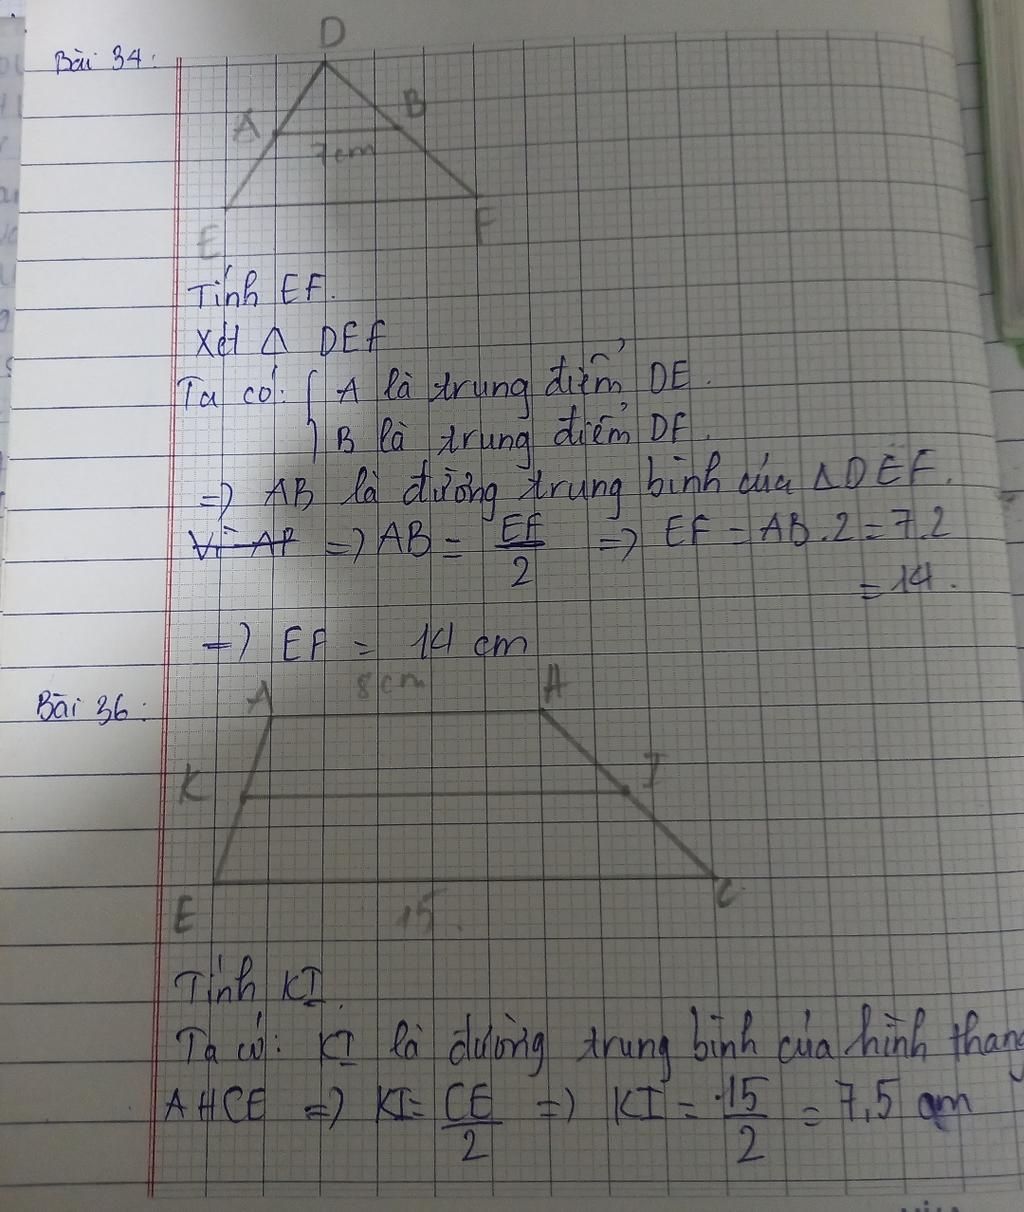 Bài 34:
D
A
B
7cm
E
F
Tính EF.
Xét Δ DEF
Ta có: { A là trung điểm DE.
B là trung điểm DF.
=> AB là đường trung bình của ΔDEF.
Vì AP => AB = EF/2 => EF = AB.2 = 7.2
= 14.
=> EF = 14 cm
Bài 36:
A
8cm
H
K
I
E
15
C
Tính KI.
Ta có: KI là đường trung bình của hình thang
AHCE => KI = CE/2 => KI = 15/2 = 7,5 cm